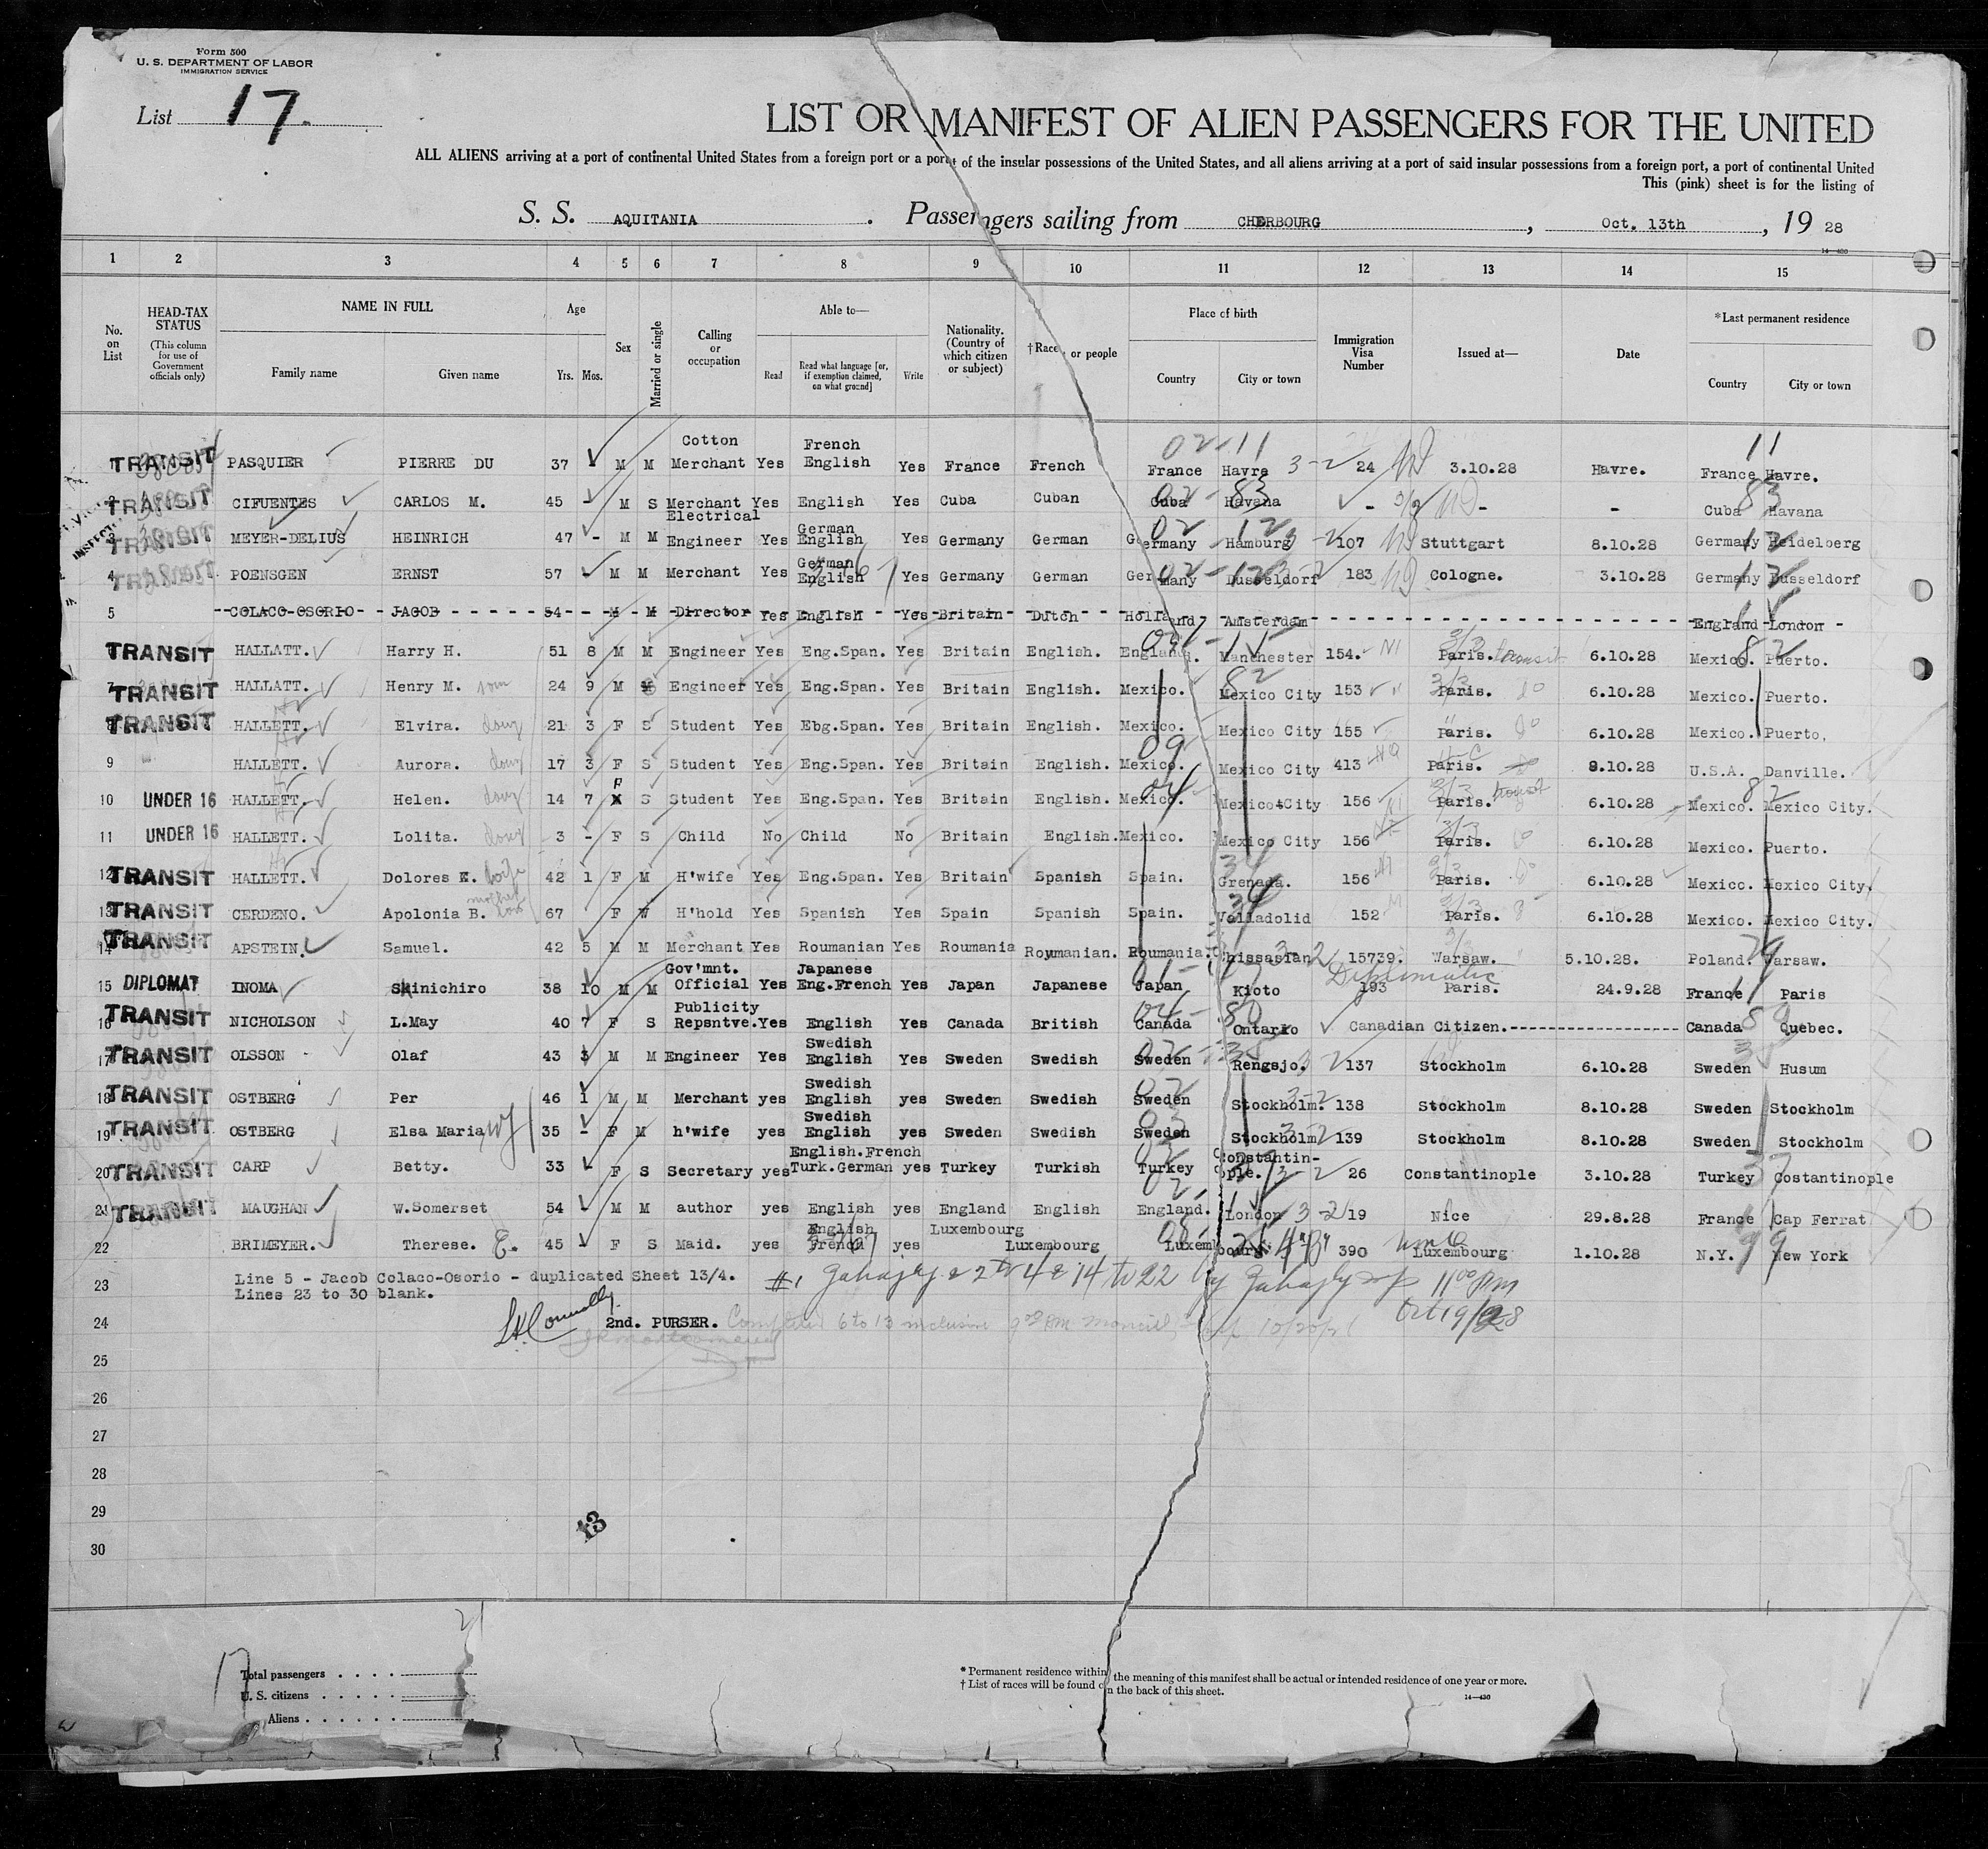 Form 500
U. S. DEPARTMENT OF LABOR
IMMIGRATION SERVICE
List 17.
LIST OR MANIFEST OF ALIEN PASSENGERS FOR THE UNITED
ALL ALIENS arriving at a port of continental United States from a foreign port or a port of the insular possessions of the United States, and all aliens arriving at a port of said insular possessions from a foreign port, a port of continental United
This (pink) sheet is for the listing of
S. S. AQUITANIA . Passengers sailing from CHERBOURG , Oct. 13th , 19 28
14—430
1 2 3 4 5 6 7 8 9 10 11 12 13 14 15
No. on List
HEAD-TAX STATUS (This column for use of Government officials only)
NAME IN FULL Family name Given name
Age Yrs. Mos.
Sex
Married or single
Calling or occupation
Able to— Read Read what language [or, if exemption claimed, on what ground] Write
Nationality. (Country of which citizen or subject)
†Race or people
Place of birth Country City or town
Immigration Visa Number
Issued at—
Date
*Last permanent residence Country City or town
1 TRANSIT PASQUIER PIERRE DU 37 - M M Cotton Merchant Yes French English Yes France French France Havre 24 3.10.28 Havre. France Havre.
2 TRANSIT CIFUENTES CARLOS M. 45 - M S Merchant Yes English Yes Cuba Cuban Cuba Havana - - - Cuba Havana
3 TRANSIT MEYER-DELIUS HEINRICH 47 - M M Electrical Engineer Yes German English Yes Germany German Germany Hamburg 107 Stuttgart 8.10.28 Germany Heidelberg
4 TRANSIT POENSGEN ERNST 57 - M M Merchant Yes German English Yes Germany German Germany Dusseldorf 183 Cologne. 3.10.28 Germany Dusseldorf
5 COLACO-OSORIO JACOB 54 - M M Director Yes English Yes Britain Dutch Holland Amsterdam England London
6 TRANSIT HALLATT. Harry H. 51 8 M M Engineer Yes Eng.Span. Yes Britain English. England. Manchester 154. Paris. transit 6.10.28 Mexico. Puerto.
7 TRANSIT HALLATT. Henry M. son 24 9 M Engineer Yes Eng.Span. Yes Britain English. Mexico. Mexico City 153 Paris. do 6.10.28 Mexico. Puerto.
8 TRANSIT HALLETT. Elvira. daug 21 3 F S Student Yes Ebg.Span. Yes Britain English. Mexico. Mexico City 155 Paris. do 6.10.28 Mexico. Puerto.
9 HALLETT. Aurora. daug 17 3 F S Student Yes Eng.Span. Yes Britain English. Mexico. Mexico City 413 Paris. 9.10.28 U.S.A. Danville.
10 UNDER 16 HALLETT. Helen. daug 14 7 F S Student Yes Eng.Span. Yes Britain English. Mexico. Mexico City 156 Paris. transit 6.10.28 Mexico. Mexico City.
11 UNDER 16 HALLETT. Lolita. daug 3 - F S Child No Child No Britain English. Mexico. Mexico City 156 Paris. do 6.10.28 Mexico. Puerto.
12 TRANSIT HALLETT. Dolores E. wife 42 1 F M H'wife Yes Eng.Span. Yes Britain Spanish Spain. Grenada. 156 Paris. do 6.10.28 Mexico. Mexico City.
13 TRANSIT CERDENO. Apolonia B. mother 67 F W H'hold Yes Spanish Yes Spain Spanish Spain. Valladolid 152 Paris. 6.10.28 Mexico. Mexico City.
14 TRANSIT APSTEIN. Samuel. 42 5 M M Merchant Yes Roumanian Yes Roumania Roumanian. Roumania. Chissasian 15739. Warsaw. 5.10.28. Poland. Warsaw.
15 DIPLOMAT INOMA Shinichiro 38 10 M M Gov'mnt. Official Yes Japanese Eng.French Yes Japan Japanese Japan Kioto 193 Diplomatic Paris. 24.9.28 France Paris
16 TRANSIT NICHOLSON L.May 40 7 F S Publicity Repsntve. Yes English Yes Canada British Canada Ontario Canadian Citizen.----------------- Canada Quebec.
17 TRANSIT OLSSON Olaf 43 3 M M Engineer Yes Swedish English Yes Sweden Swedish Sweden Rengsjo. 137 Stockholm 6.10.28 Sweden Husum
18 TRANSIT OSTBERG Per 46 1 M M Merchant yes Swedish English yes Sweden Swedish Sweden Stockholm. 138 Stockholm 8.10.28 Sweden Stockholm
19 TRANSIT OSTBERG Elsa Maria wf 35 - F M h'wife yes Swedish English yes Sweden Swedish Sweden Stockholm 139 Stockholm 8.10.28 Sweden Stockholm
20 TRANSIT CARP Betty. 33 - F S Secretary yes English.French Turk.German yes Turkey Turkish Turkey Constantin-ople. 26 Constantinople 3.10.28 Turkey Costantinople
21 TRANSIT MAUGHAN W.Somerset 54 - M M author yes English yes England English England. London 19 Nice 29.8.28 France Cap Ferrat
22 BRIMEYER. Therese. E. 45 - F S Maid. yes English French yes Luxembourg Luxembourg Luxembourg. 390 Luxembourg 1.10.28 N.Y. New York
23 Line 5 - Jacob Colaco-Osorio - duplicated Sheet 13/4.
Lines 23 to 30 blank.
24 2nd. PURSER. 6 to 13 inclusive
Oct 19/28
25
26
27
28
29
30
13
17
Total passengers
U. S. citizens
Aliens
* Permanent residence within the meaning of this manifest shall be actual or intended residence of one year or more.
† List of races will be found on the back of this sheet.
14—430